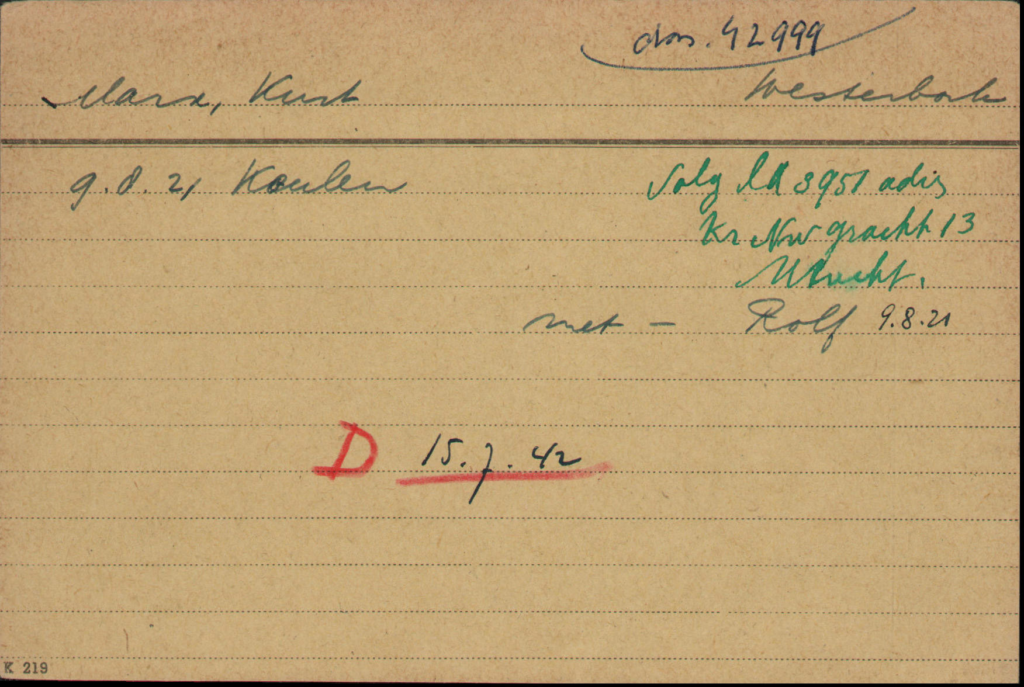 dos. 42999
Marx, Kurt Westerbork
9.8.21 Keulen
volg LA 3951 adis
Kr Nw gracht 13
Utrecht.
met - Rolf 9.8.21
D 15.7.42
K 219